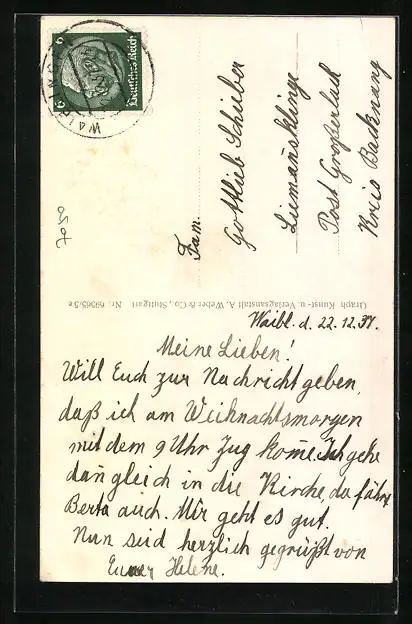 Waibl. d. 22.12.37.
Meine Lieben!
Will Euch zur Nachricht geben,
daß ich am Weihnachtsmorgen
mit dem 9 Uhr Zug kom̄e. Ich gehe
dan̄ gleich in die Kirche, da fährt
Berta auch. Mir geht es gut.
Nun seid herzlich gegrüßt von
Eurer Helene.
Fam.
Gottlieb Schieber
Lieman̄sklinge
Post Großerlach
Kreis Backnang
Graph. Kunst- u. Verlagsanstalt A. Weber & Co., Stuttgart Nr. 69365/5 e
Deutsches Reich
6 6
WAIBLINGEN